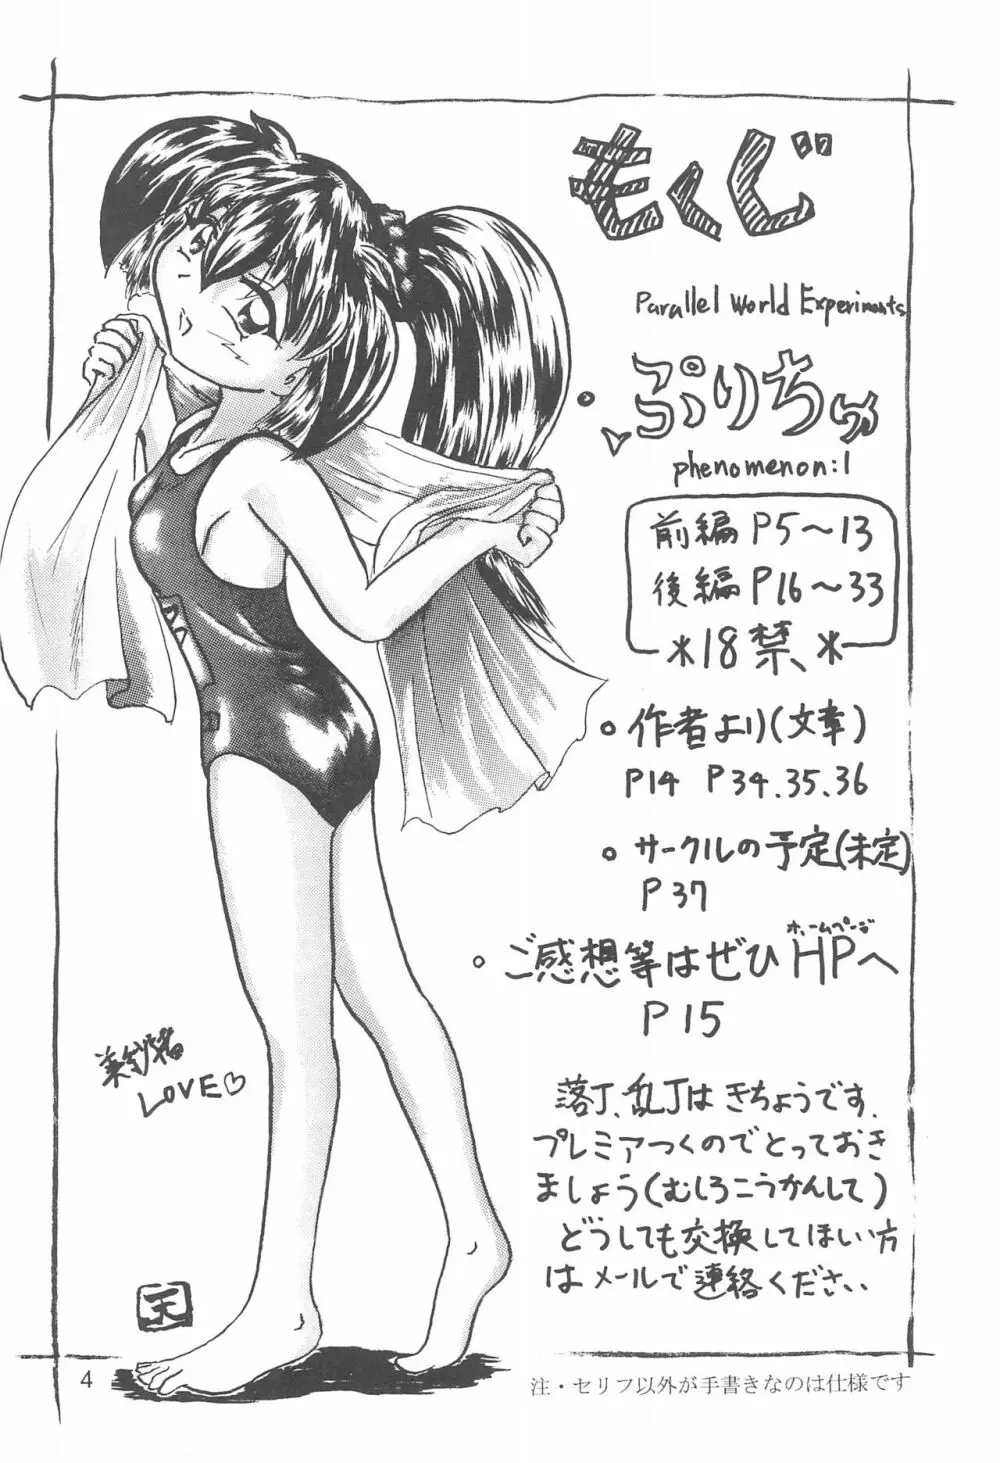 もくじ
Parallel World Experiments
・ぷりちゅ
phenomenon:1
前編 P5〜13
後編 P16〜33
＊18禁＊
。作者より(文章)
P14 P34.35.36
。サークルの予定(未定)
P37
ホームページ
。ご感想等はぜひHPへ
P15
LOVE♡
落丁、乱丁はきちょうです.
プレミアつくのでとっておき
ましょう(むしろこうかんして)
どうしても交換してほしい方
はメールで連絡ください.
天
4
注・セリフ以外が手書きなのは仕様です